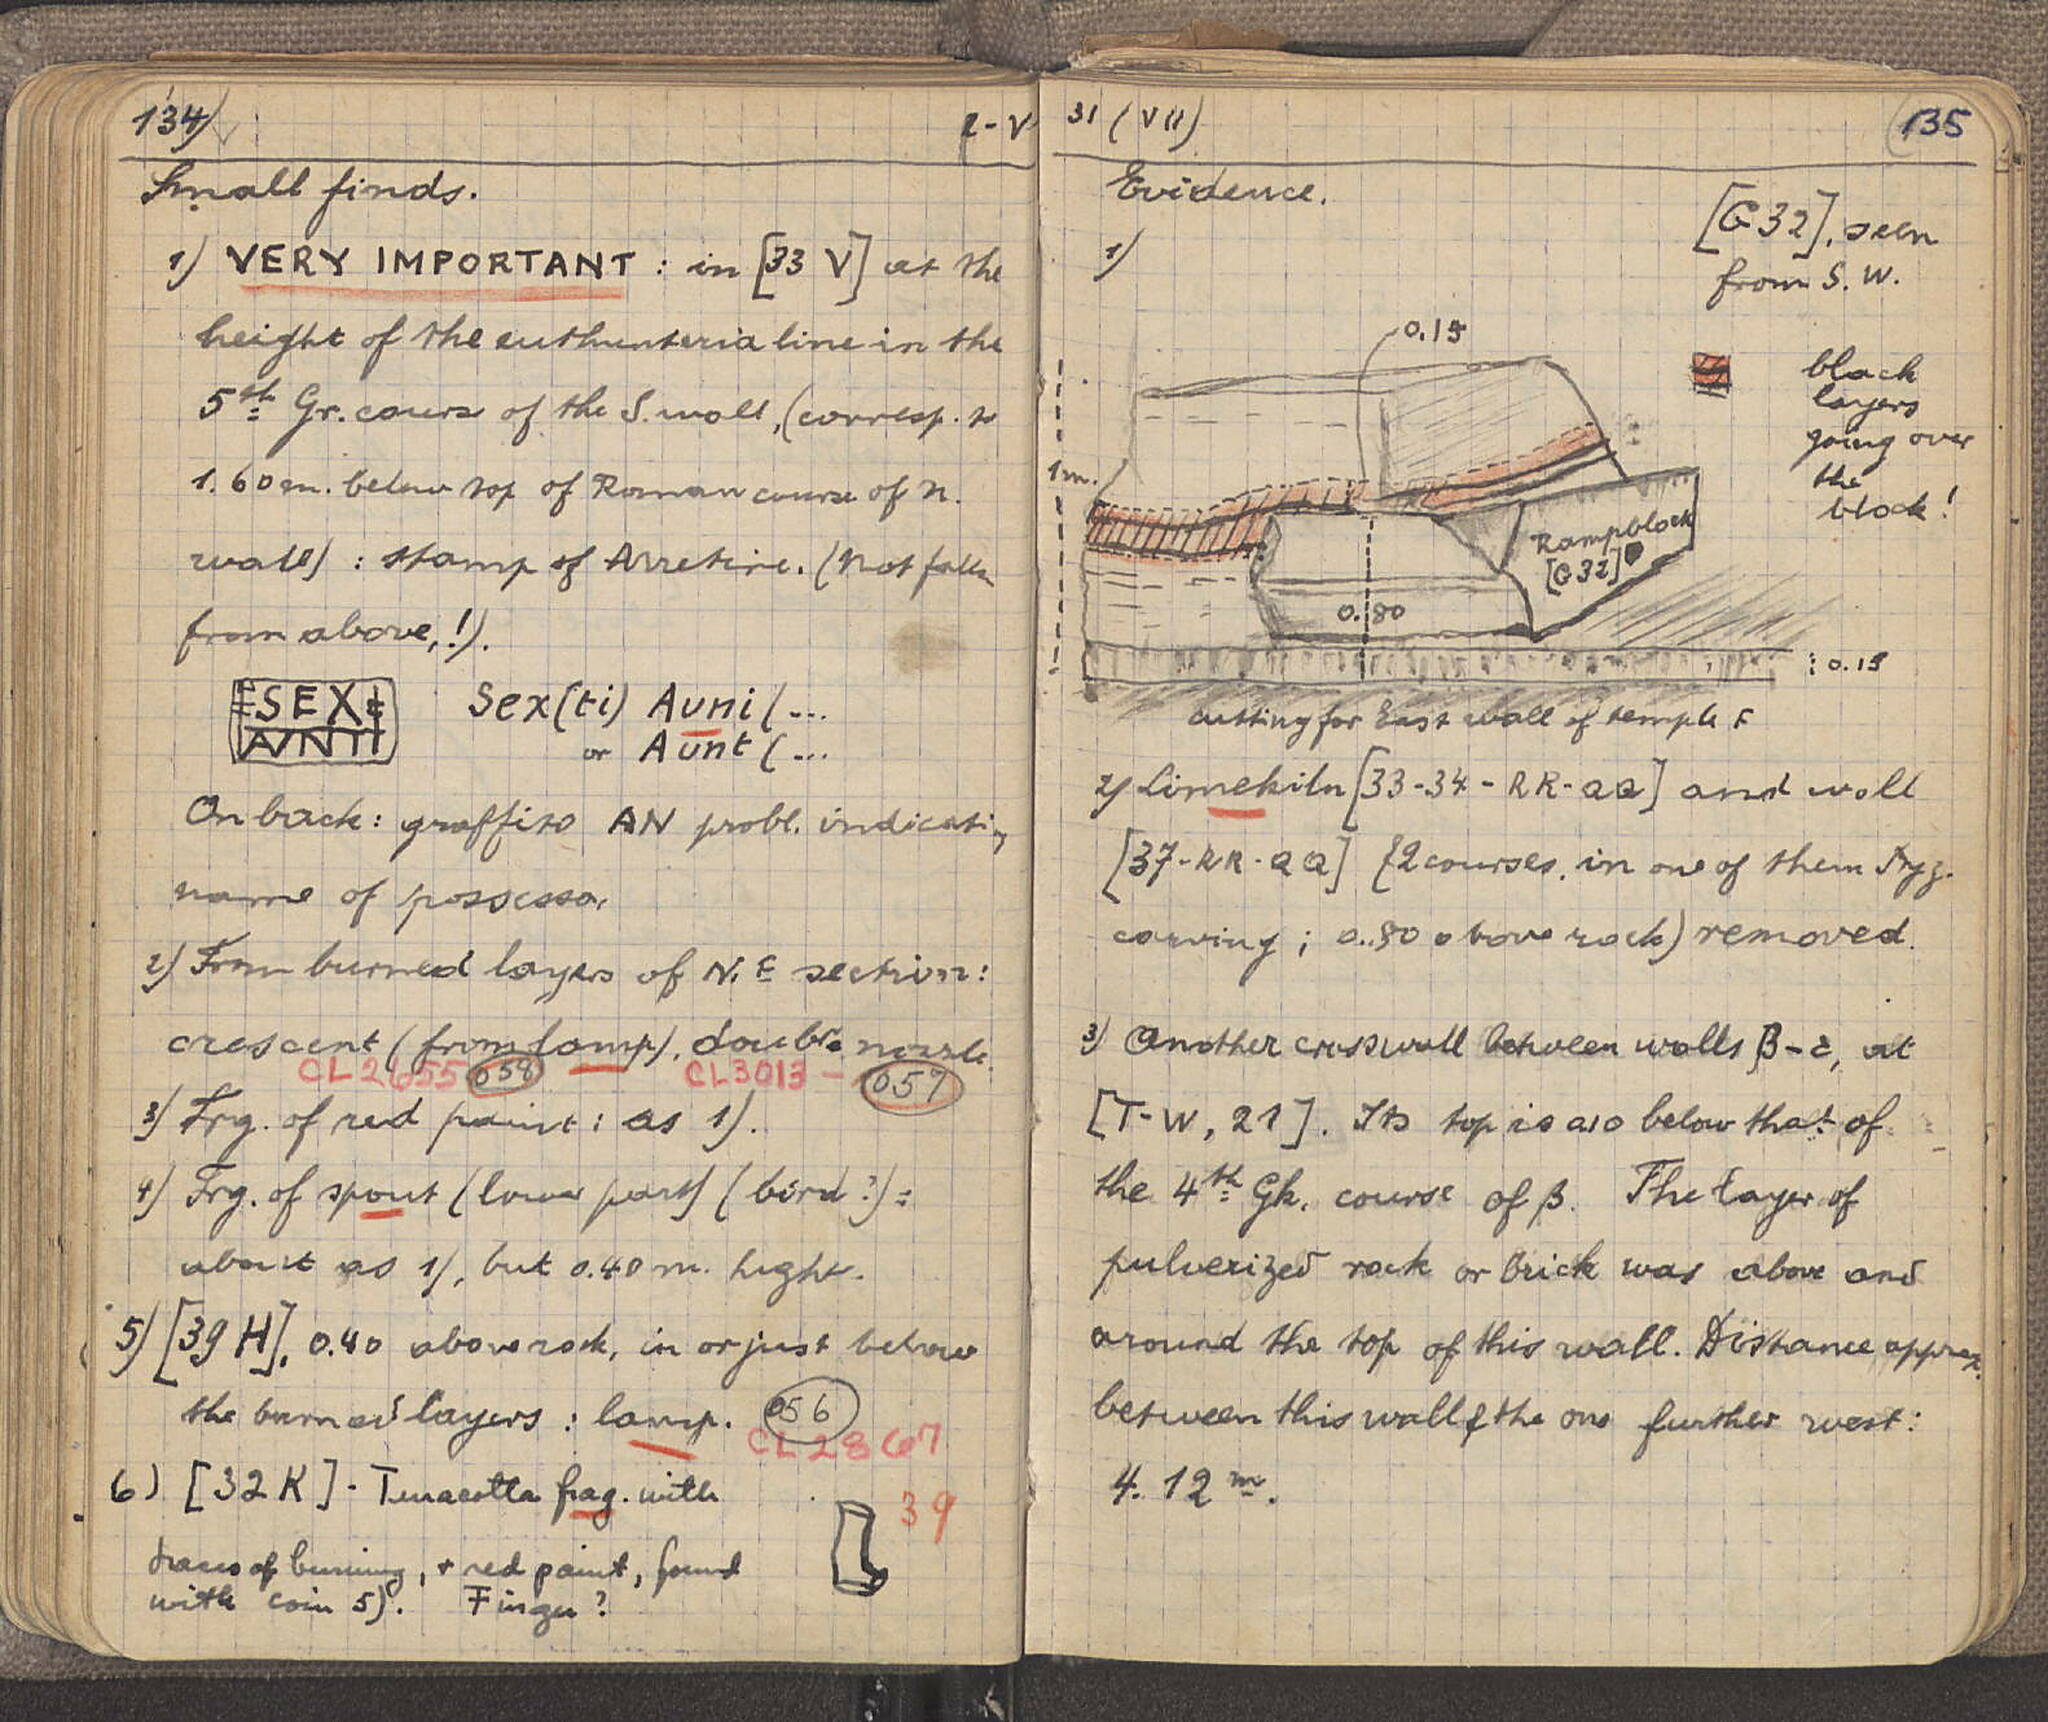 134)
2-V
Small finds.
1) VERY IMPORTANT : in [33 V] at the
height of the euthynteria line in the
5th Gr. course of the S. wall, (corresp. to
1.60 m. below top of Roman course of n.
wall) : stamp of Arretine. (Not fallen
from above,!).
SEX
AVNTI
Sex(ti) Auni(...
or Aunt(...
On back: graffito AN probl. indicating
name of possessor
2) From burned layers of N.E section:
crescent (from lamp), double nozzle.
CL2655 058 CL3013 - 057
3) Frg. of red paint: as 1).
4) Frg. of spout (lower part) (bird?) =
about as 1), but 0.40 m. hight.
5) [39 H], 0.40 above rock, in or just below
the burned layers : lamp. 056
CL2867
6) [32 K] - Terracotta frag. with
traces of burning, + red paint, found
with coin 5). Finger?
39
31 (VII)
135
Evidence.
1)
[G32], seen
from S. W.
0.15
black
layers
going over
the
block!
1 m.
Rampblock
[G32]
0.80
0.15
cutting for East wall of temple F
2) Limekiln [33-34 - RR-QQ] and wall
[37-RR-QQ] (2 courses, in one of them frg.
carving ; 0.80 above rock) removed.
3) Another crosswall between walls β-ε, at
[T-W, 21]. Its top is 0.10 below that of
the 4th Gk. course of β. The layer of
pulverized rock or brick was above and
around the top of this wall. Distance approx.
between this wall & the one further west:
4.12 m.